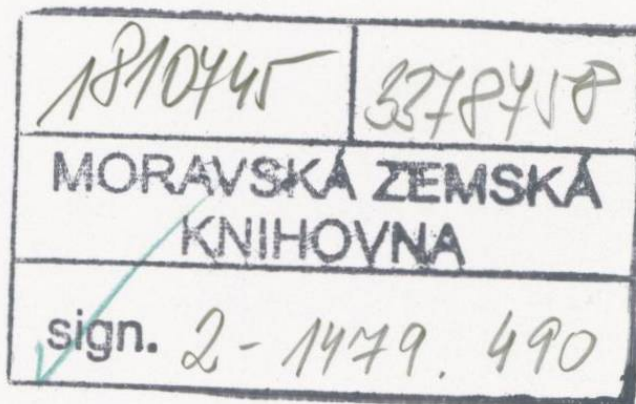 1810745 3378758
MORAVSKÁ ZEMSKÁ
KNIHOVNA
sign. 2-1479.490